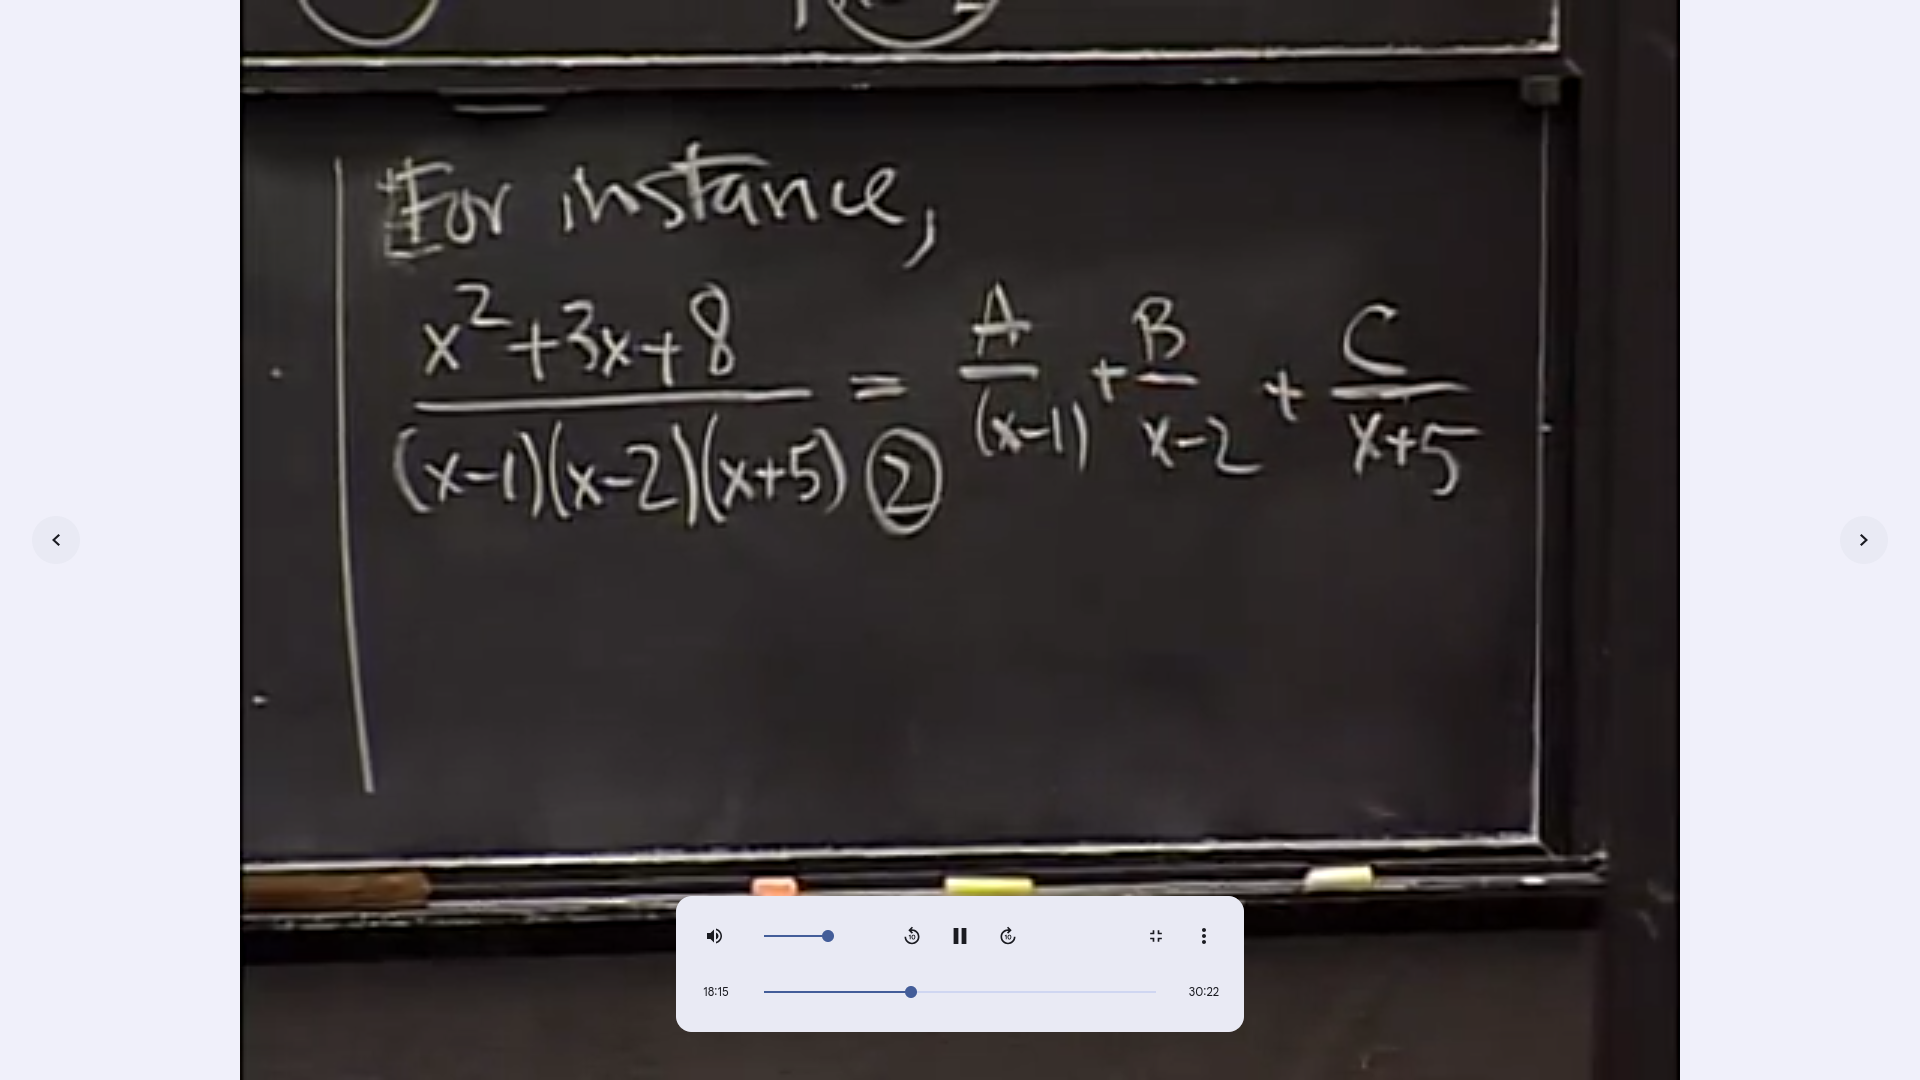 For instance,
x²+3x+8 / (x-1)(x-2)(x+5) ② = A/(x-1) + B/x-2 + C/x+5
10 10
18:15 30:22